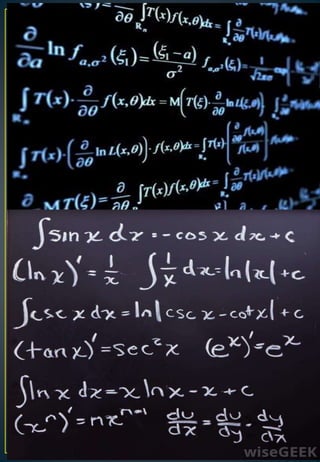 ∂/∂θ ∫_{R_n} T(x) f(x,θ)dx = ∫_{R_n} ∂/∂θ
∂/∂a ln f_{a,σ²}(ξ₁) = (ξ₁ − a)/σ² f_{a,σ²}(ξ₁) = 1/√2πσ
∫_{R_n} T(x) · ∂/∂θ f(x,θ)dx = M(T(ξ) · ∂/∂θ ln L(ξ,θ)) ∫
∫_{R_n} T(x) · (∂/∂θ ln L(x,θ)) · f(x,θ)dx = ∫_{R_n} T(x) · (∂/∂θ f(x,θ) / f(x,θ))
∂/∂θ MT(ξ) = ∂/∂θ ∫ T(x)f(x,θ)dx = ∫ ∂/∂θ T(x)f(x,θ)dx
∫sin x dx = -cos x dx + c
(ln x)' = 1/x ∫ 1/x dx = ln|x| + c
∫csc x dx = ln|csc x - cot x| + c
(tan x)' = sec² x (eˣ)' = eˣ
∫ln x dx = x ln x - x + c
(xⁿ)' = nxⁿ⁻¹ du/dx = du/dy · dy/dx
wiseGEEK